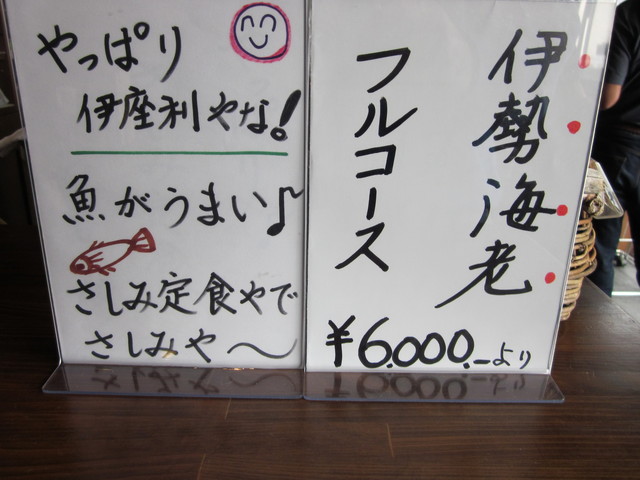 やっぱり
伊座利やな!
魚がうまい♪
さしみ定食やで
さしみや〜
伊勢海老
フルコース
¥6.000.ーより